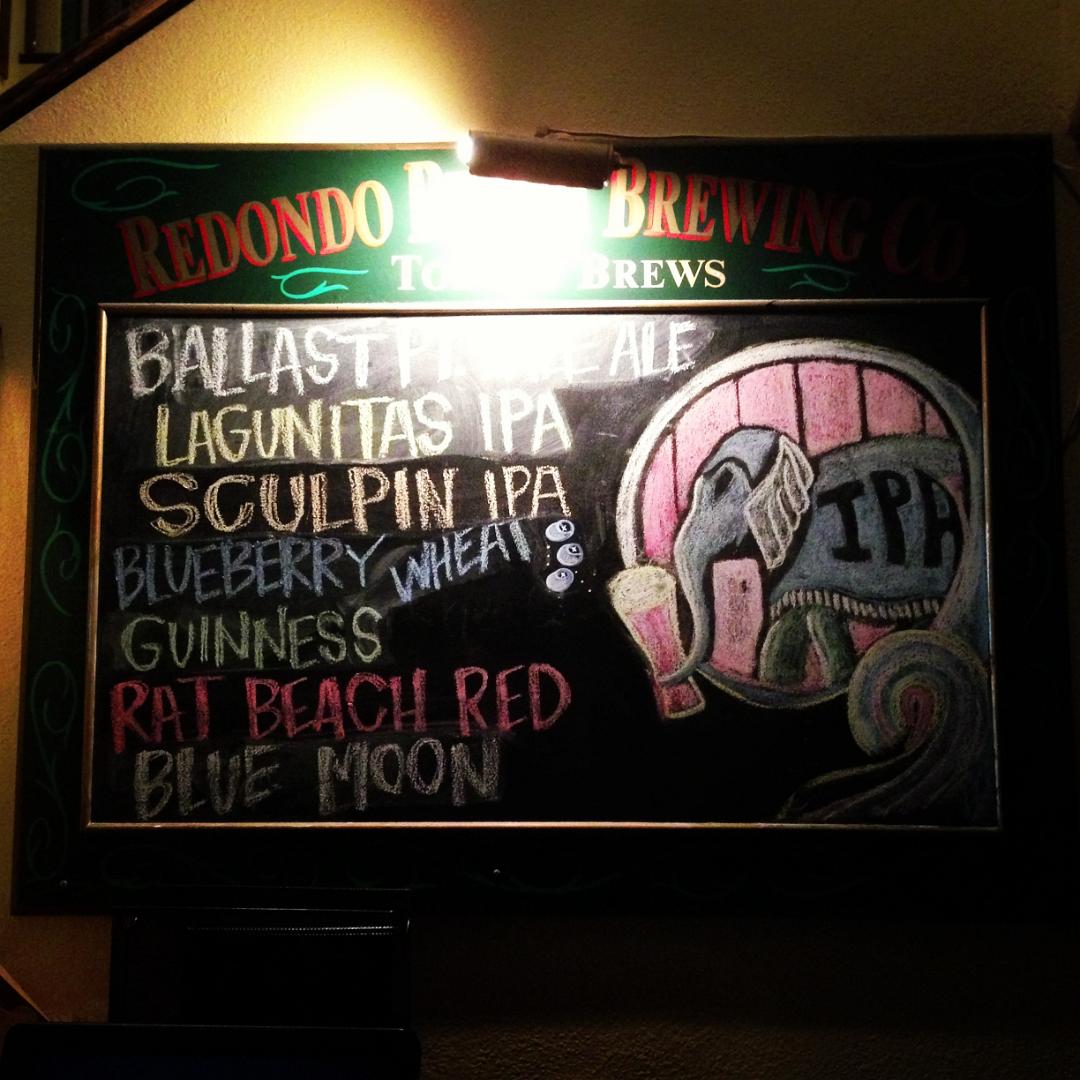 REDONDO BREWING CO.
BREWS
BALLAST ALE
LAGUNITAS IPA
SCULPIN IPA
BLUEBERRY WHEAT
GUINNESS
RAT BEACH RED
BLUE MOON
IPA